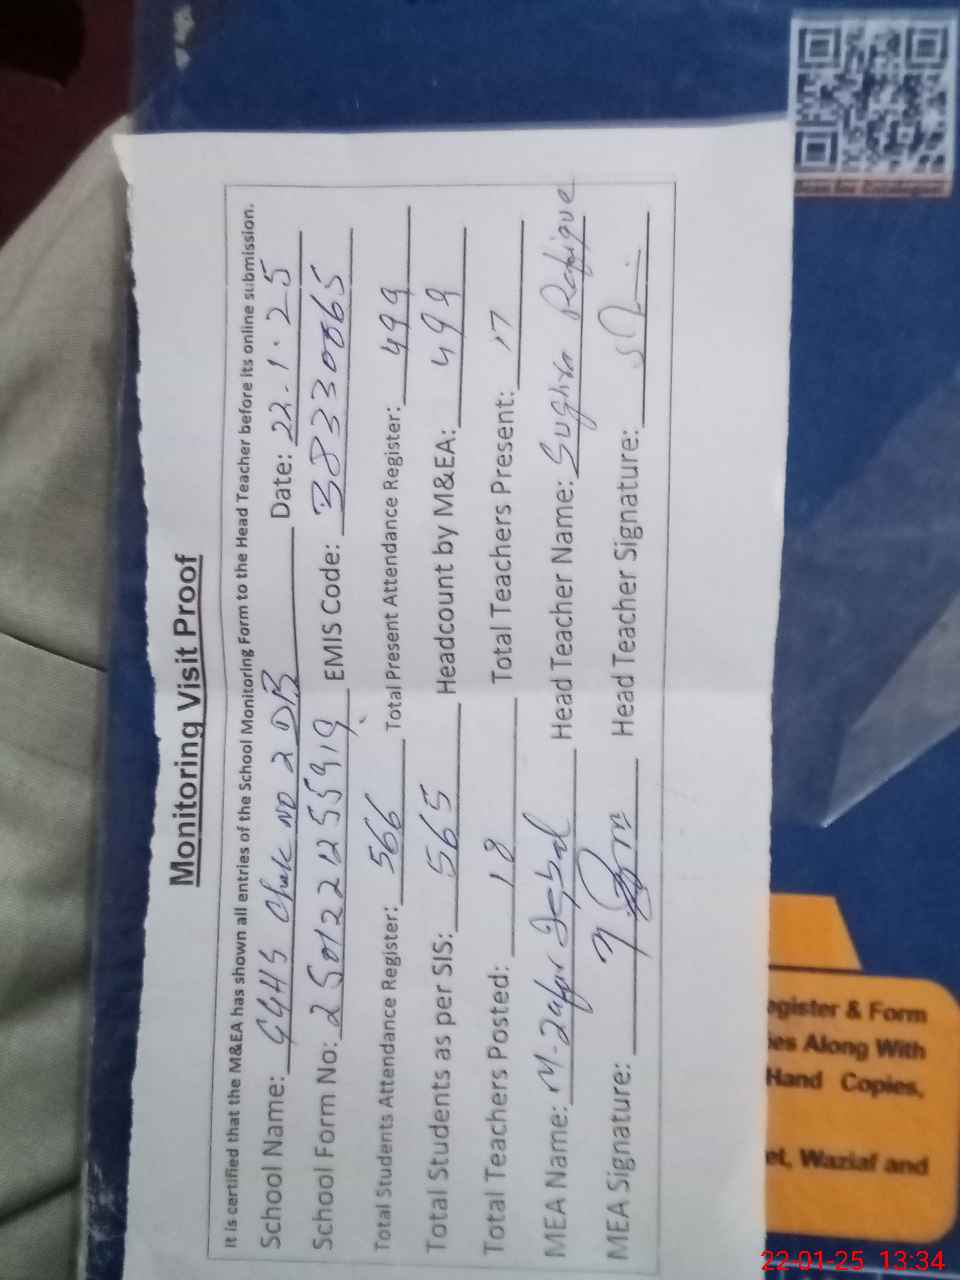 Monitoring Visit Proof
It is certified that the M&EA has shown all entries of the School Monitoring Form to the Head Teacher before its online submission.
School Name: GGHS Chak No 2 DB Date: 22.1.25
School Form No: 2501221255919 EMIS Code: 38330065
Total Students Attendance Register: 566 Total Present Attendance Register: 499
Total Students as per SIS: 565 Headcount by M&EA: 499
Total Teachers Posted: 18 Total Teachers Present: 17
MEA Name: M-Zafar Iqbal Head Teacher Name: Sughra Rafique
MEA Signature: Head Teacher Signature:
egister & Form
ies Along With
Hand Copies,
et, Waziaf and
22-01-25 13:34